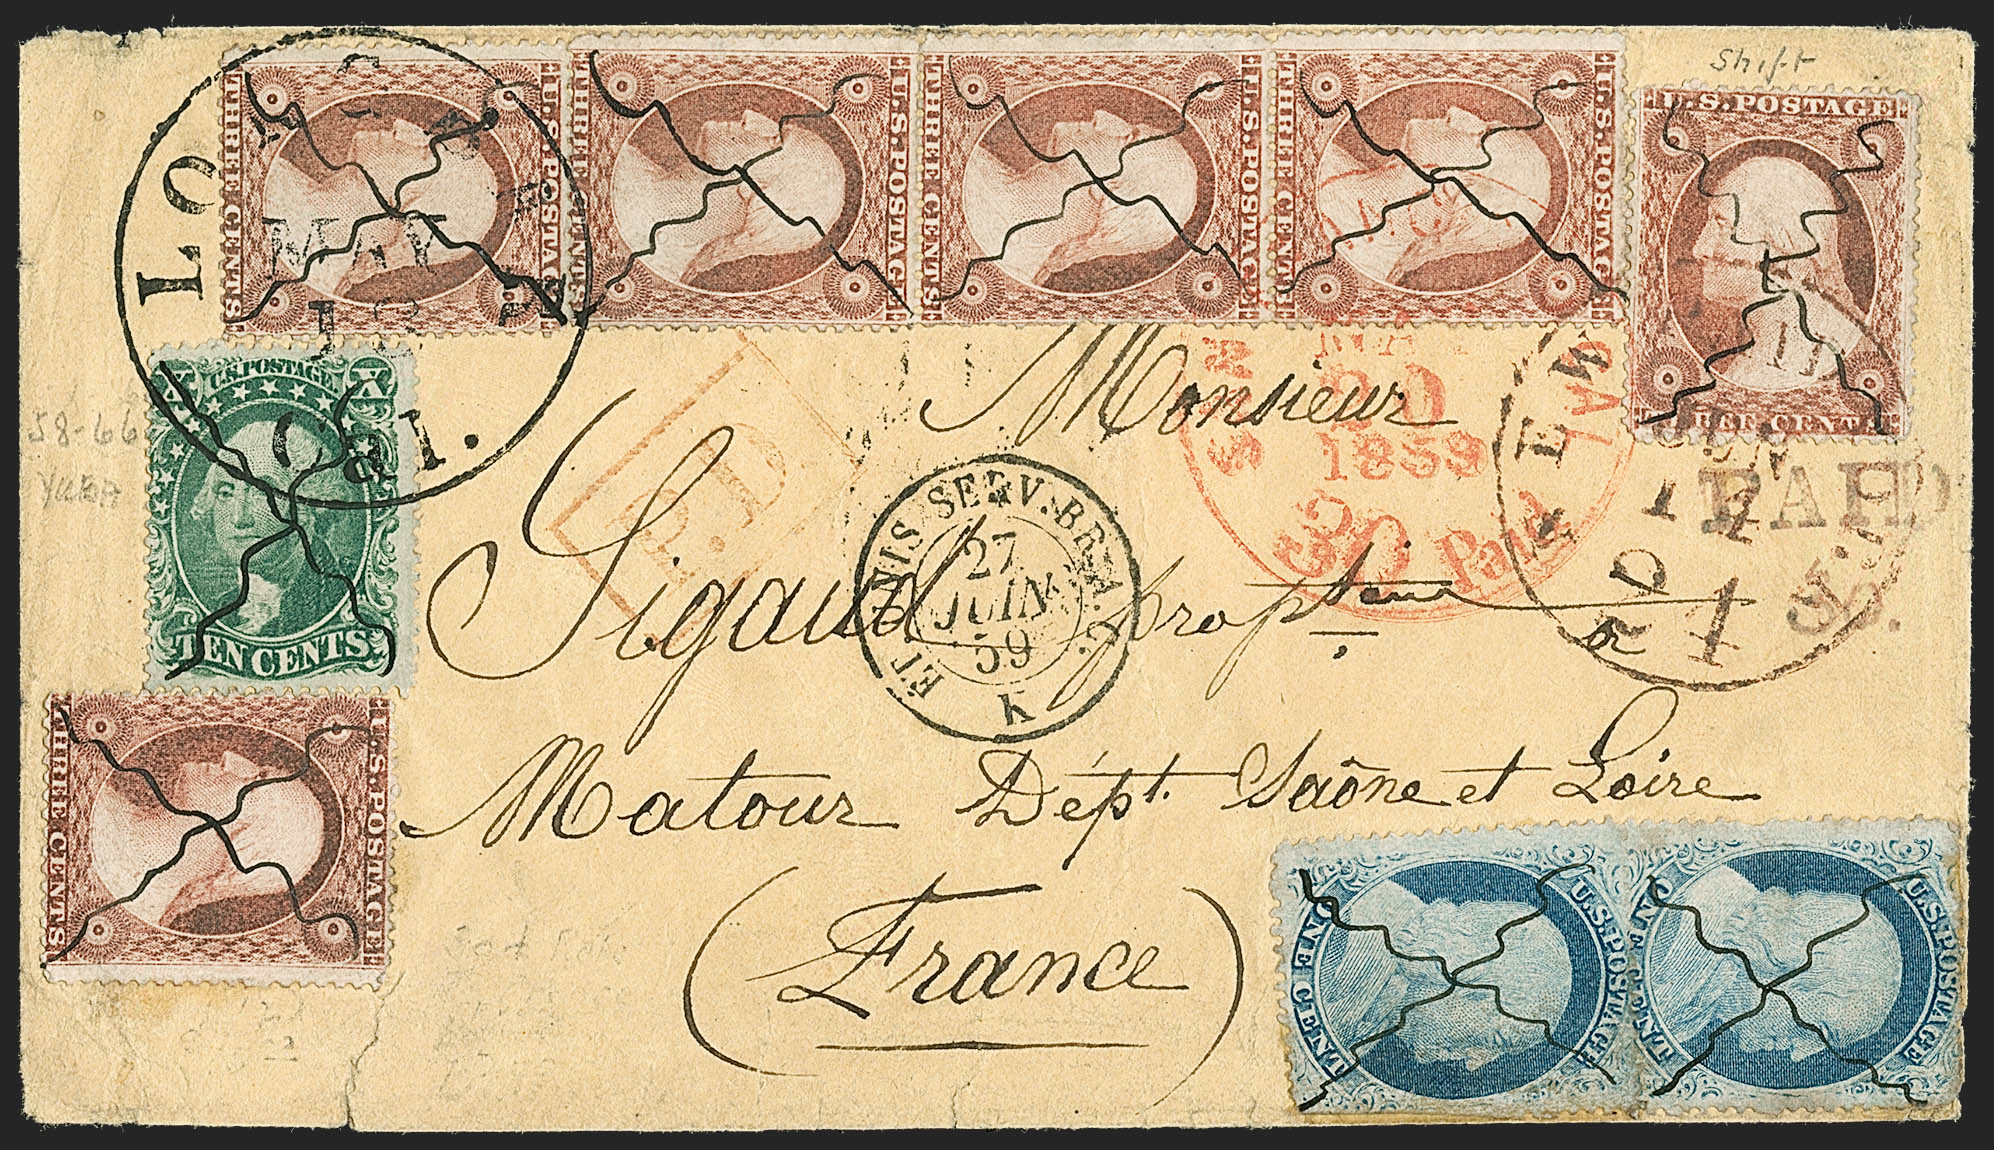 Shift
U.S. POSTAGE
THREE CENTS
U.S. POSTAGE
THREE CENTS
U.S. POSTAGE
THREE CENTS
U.S. POSTAGE
THREE CENTS
U.S. POSTAGE
THREE CENTS
MAY
13
Cal.
X U.S. POSTAGE. X
TEN CENTS
58-66
YUBA
P.D.
Monsieur
MAY
20
1859
30 Paid
NEW
PAID
Sigaud propre à
ET. UNIS SERV. BR. A. C.
27
JUIN
59
K
Matour Dépt. Saône et Loire
(France)
U.S. POSTAGE
THREE CENTS
U.S. POSTAGE
ONE CENT
U.S. POSTAGE
ONE CENT